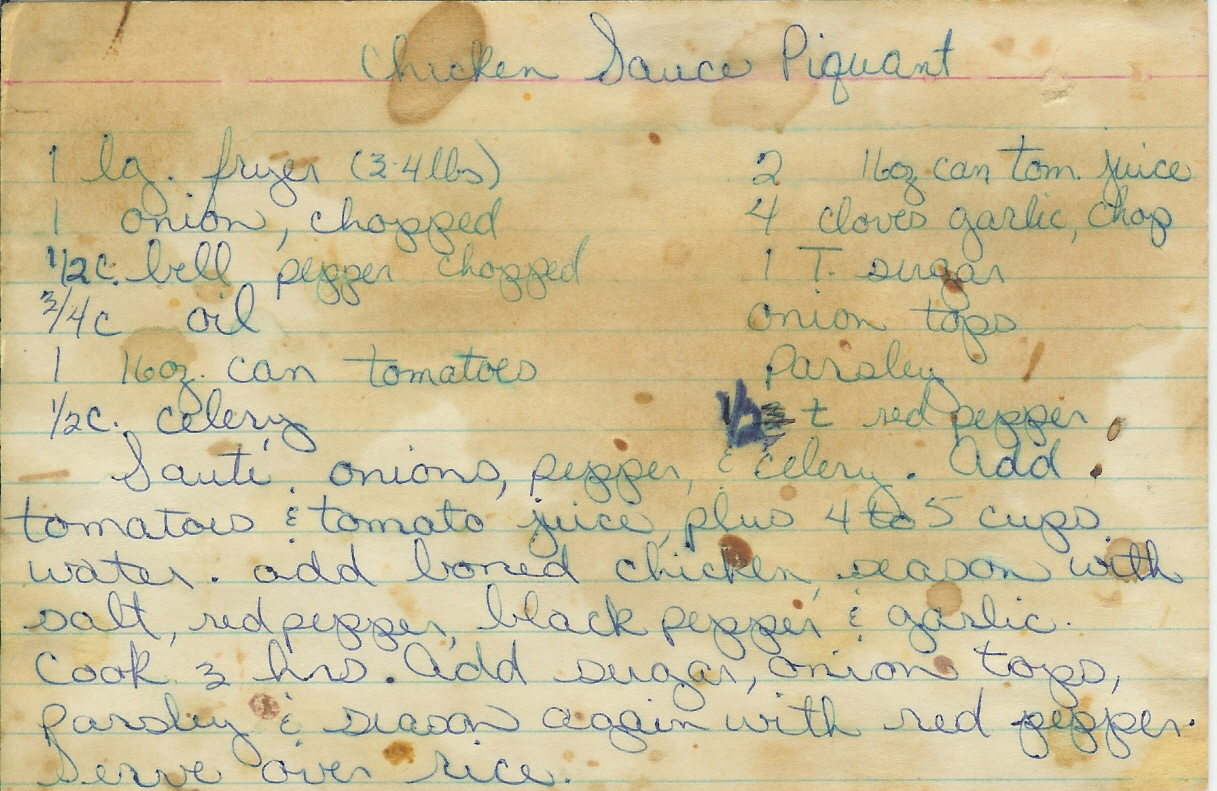 Chicken Sauce Piquant
1 lg. fryer (3-4 lbs)
1 onion, chopped
1/2 c. bell pepper chopped
3/4 c oil
1 16oz. can tomatoes
1/2 c. celery
2 16oz can tom. juice
4 cloves garlic, chop
1 T. sugar
onion tops
Parsley
1/2 t red pepper
Sauté onions, pepper, & celery. Add
tomatoes & tomato juice, plus 4 to 5 cups
water. add boned chicken, season with
salt, red pepper, black pepper & garlic.
Cook 3 hrs. Add sugar, onion tops,
parsley & season again with red pepper.
Serve over rice.